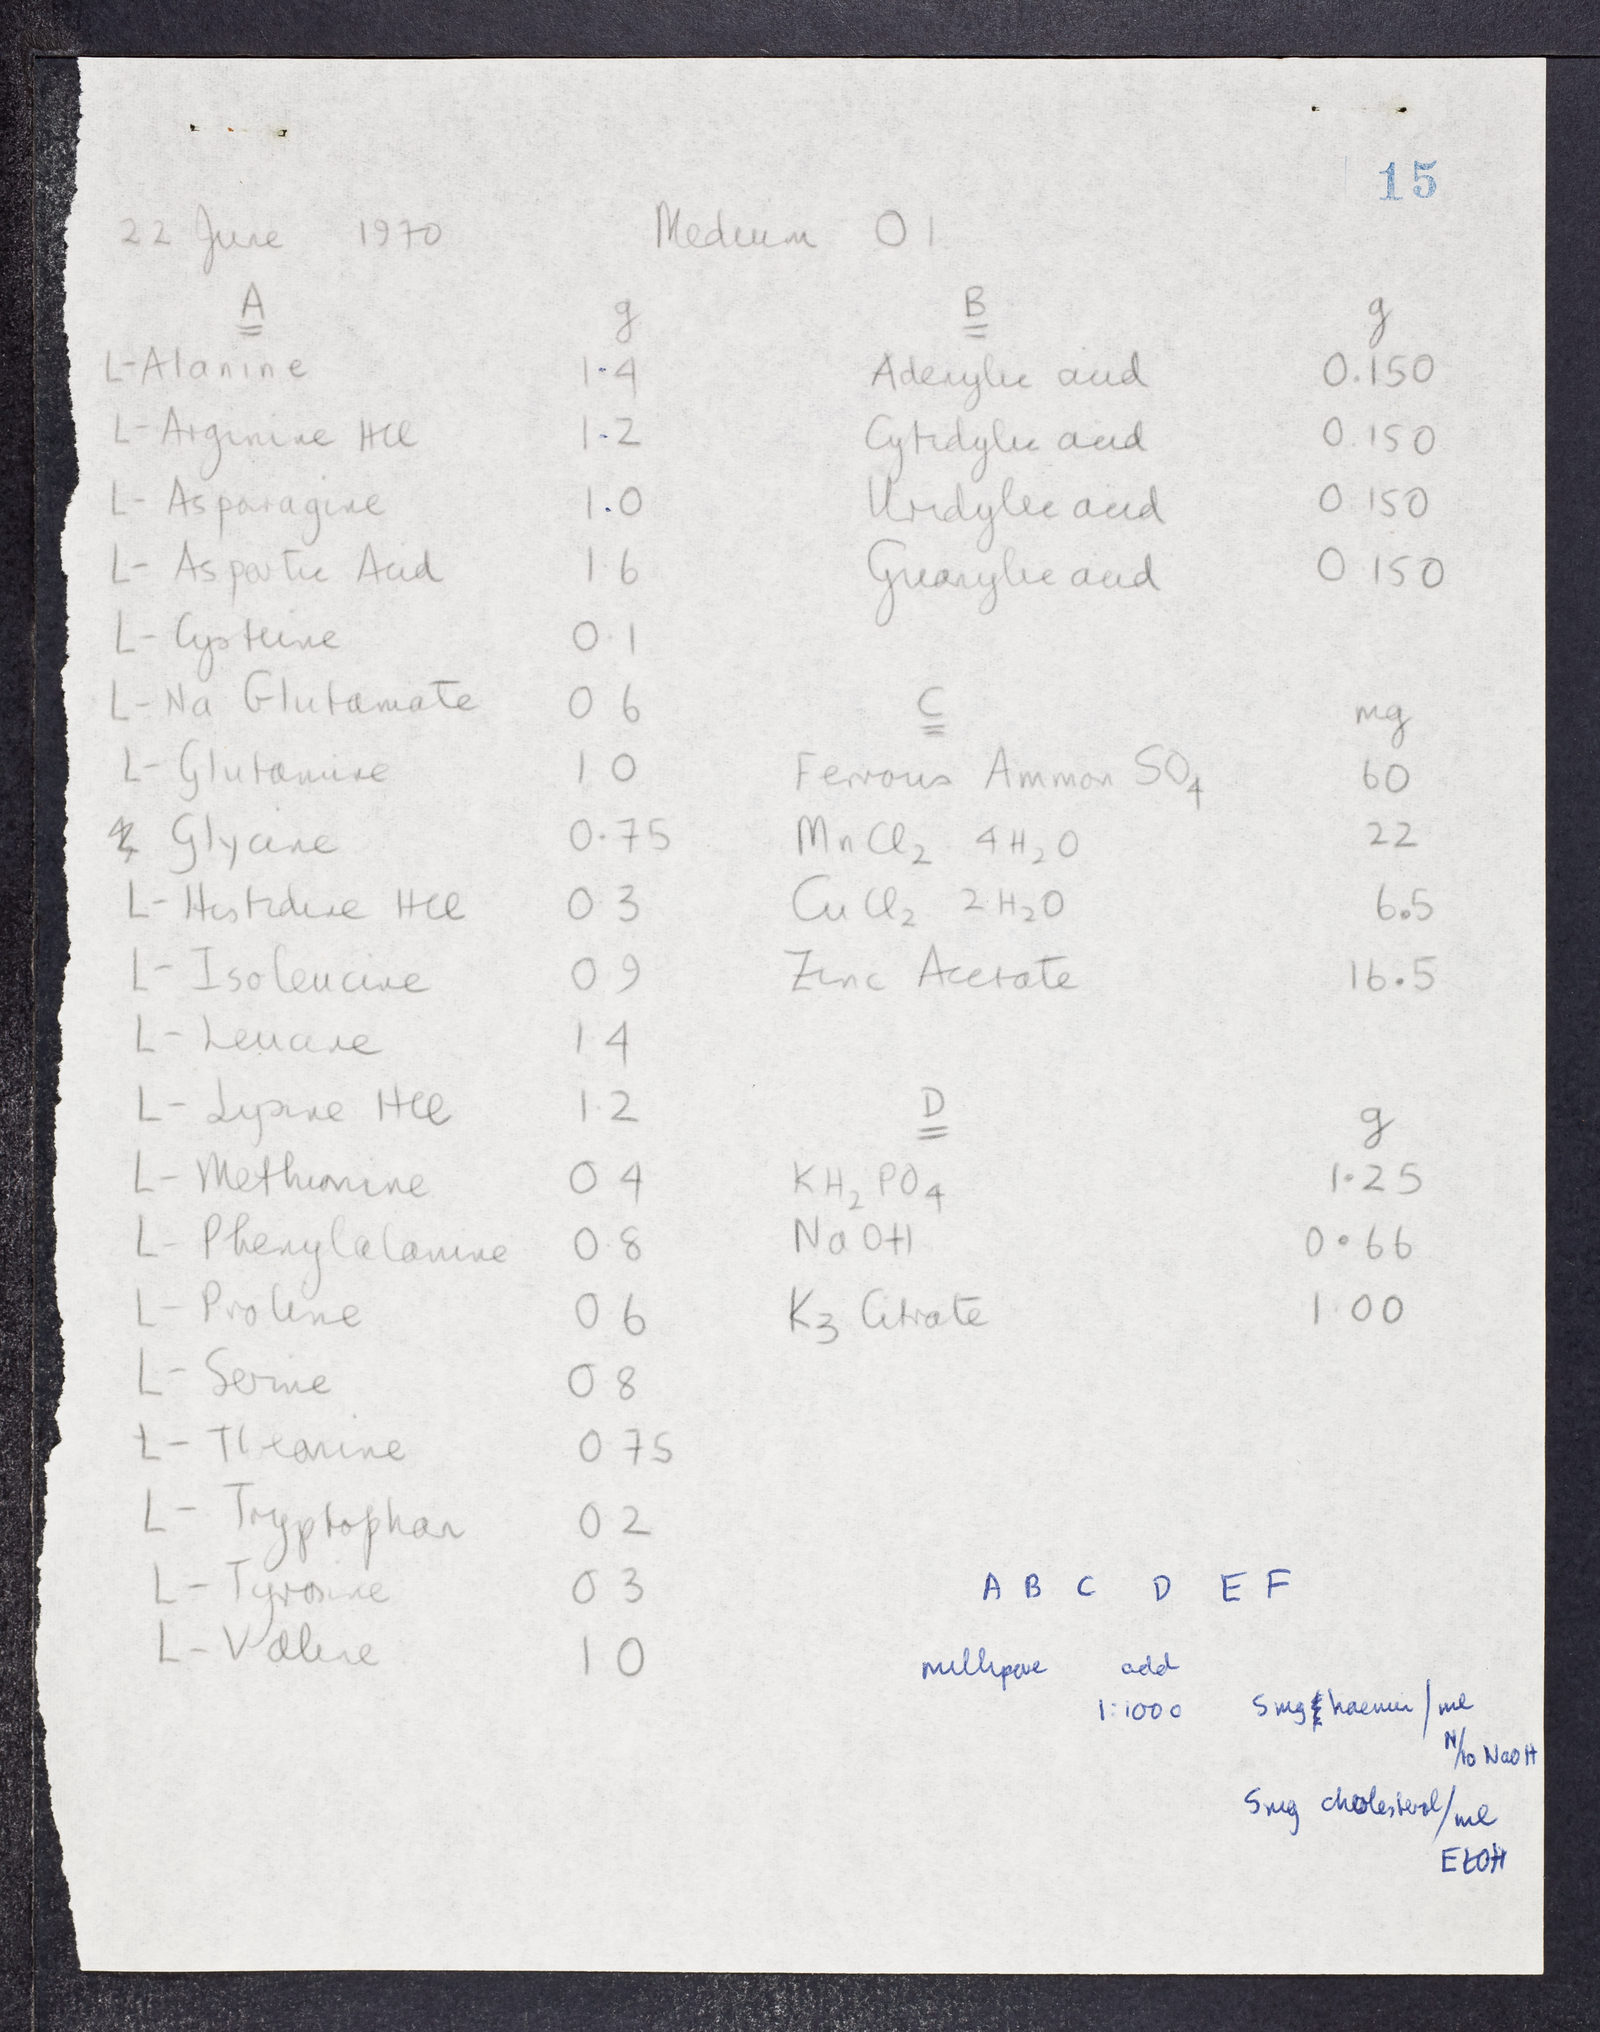 15
22 June 1970 Medium O1
A g
L-Alanine 1.4
L-Arginine HCl 1.2
L-Asparagine 1.0
L-Aspartic Acid 1.6
L-Cysteine 0.1
L-Na Glutamate 0 6
L-Glutamine 1 0
Glycine 0.75
L-Histidine HCl 0 3
L-Isoleucine 0 9
L-Leucine 1 4
L-Lysine HCl 1.2
L-Methionine 0 4
L-Phenylalanine 0.8
L-Proline 0 6
L-Serine 0 8
L-Threonine 0 75
L-Tryptophan 0 2
L-Tyrosine 0 3
L-Valine 1 0
B g
Adenylic acid 0.150
Cytidylic acid 0.150
Uridylic acid 0 150
Guanylic acid 0 150
C mg
Ferrous Ammon SO4 60
MnCl2 4H2O 22
CuCl2 2H2O 6.5
Zinc Acetate 16.5
D g
KH2PO4 1.25
NaOH 0.66
K3 Citrate 1.00
A B C D E F
millipore add
1:1000 5mg haemin/ml
N/10 NaOH
5mg cholesterol/ml
EtOH